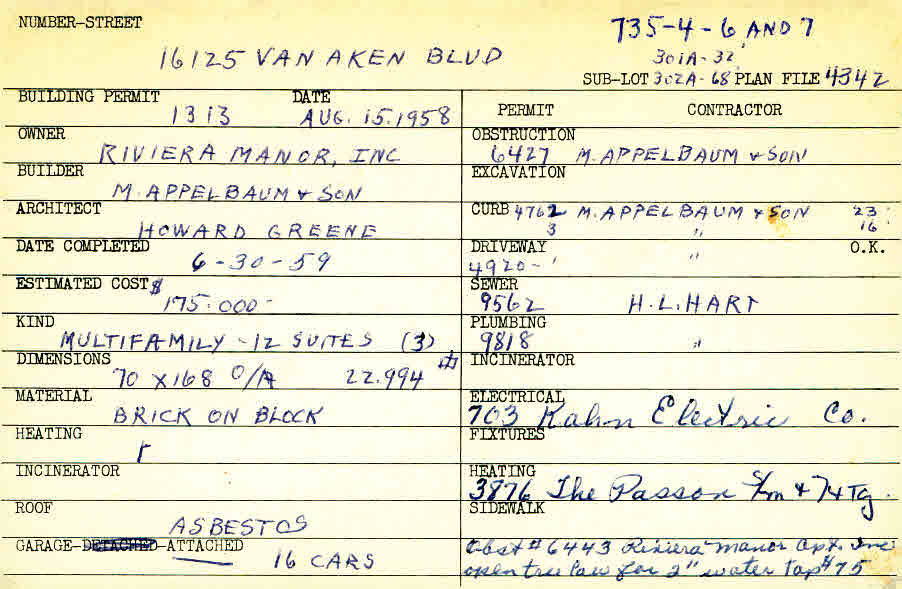 NUMBER-STREET
735-4-6 AND 7
16125 VAN AKEN BLVD
301A-32'
SUB-LOT 302A-68' PLAN FILE 4342
BUILDING PERMIT DATE
1313 AUG. 15. 1958
PERMIT CONTRACTOR
OWNER
RIVIERA MANOR, INC
OBSTRUCTION
6427 M. APPELBAUM & SON
BUILDER
M. APPELBAUM & SON
EXCAVATION
ARCHITECT
HOWARD GREENE
CURB 4762 M. APPELBAUM & SON 23
3 " 16
DATE COMPLETED
6-30-59
DRIVEWAY " O.K.
4920-
ESTIMATED COST $
175.000-
SEWER
9562 H.L. HART
KIND
MULTIFAMILY - 12 SUITES (3)
PLUMBING
9818 "
DIMENSIONS
70 X 168 O/A 22.994
INCINERATOR
MATERIAL
BRICK ON BLOCK
ELECTRICAL
703 Kahn Electric Co.
HEATING
FIXTURES
INCINERATOR
HEATING
3876 The Passon
ROOF
ASBESTOS
SIDEWALK
GARAGE-DETACHED-ATTACHED
16 CARS
Obst #6443 Riviera Manor Apt. Inc
open tree law for 2" water tap #75